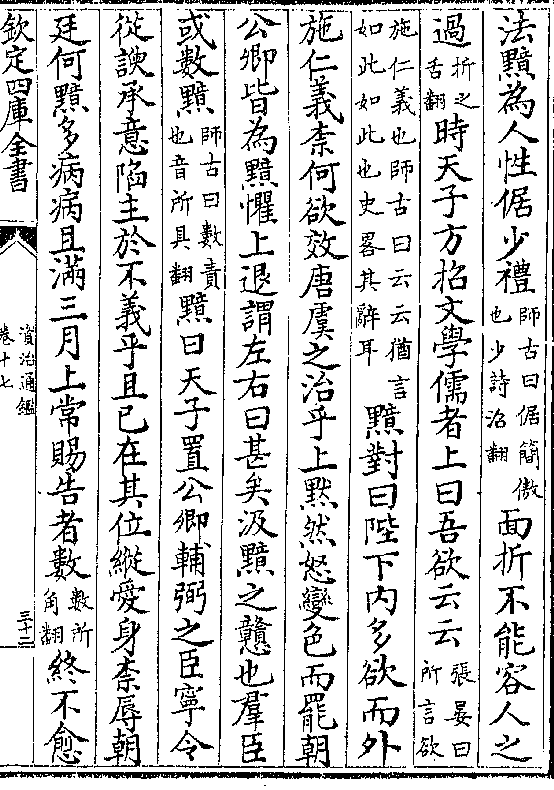 法黯為人性倨少禮師古曰倨簡傲也少詩沼翻面折不能容人之
過折之舌翻時天子方招文學儒者上曰吾欲云云張晏曰所言欲
施仁義也師古曰云云猶言如此如此也史畧其辭耳黯對曰陛下内多欲而外
施仁義柰何欲效唐虞之治乎上默然怒變色而罷朝
公卿皆為黯懼上退謂左右曰甚矣汲黯之戇也羣臣
或數黯師古曰數責也音所具翻黯曰天子置公卿輔弼之臣寧令
從諛承意陷主於不義乎且已在其位縱愛身柰辱朝
廷何黯多病病且滿三月上常賜告者數數所角翻終不愈
欽定四庫全書
資治通鑑
卷十七
三十二